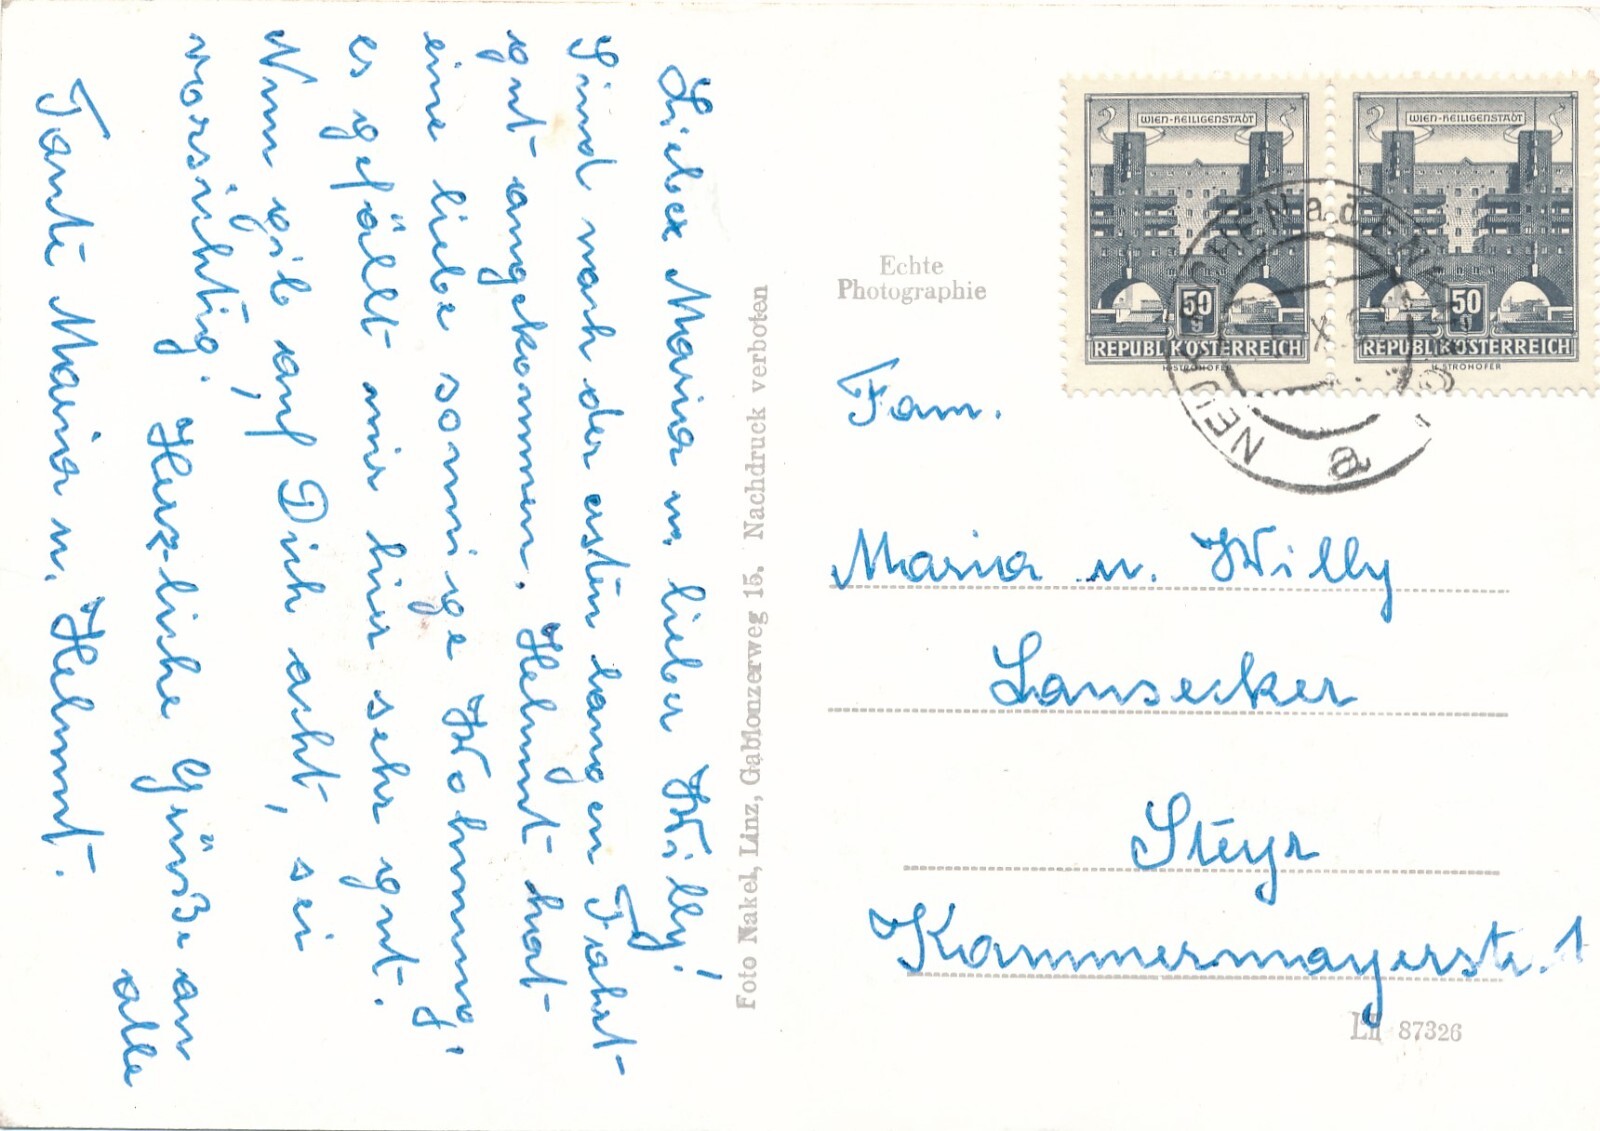 Liebe Maria u. lieber Willy!
Sind nach der ersten langen Fahrt
gut angekommen. Helmut hat
eine liebe sonnige Wohnung,
es gefällt mir hier sehr gut.
Nun gib auf Dich acht, sei
vorsichtig. Herz-liche Grüsse an
alle
Tante Maria u. Helmut.
Foto Nakel, Linz, Gablonzerweg 15. Nachdruck verboten
Echte
Photographie
WIEN-HEILIGENSTADT
50
g
REPUBLIK ÖSTERREICH
H. STROHOFER
WIEN-HEILIGENSTADT
50
g
REPUBLIK ÖSTERREICH
H. STROHOFER
Fam.
Maria u. Willy
Lansecker
Steyr
Kammermayerstr. 1
LII 87326